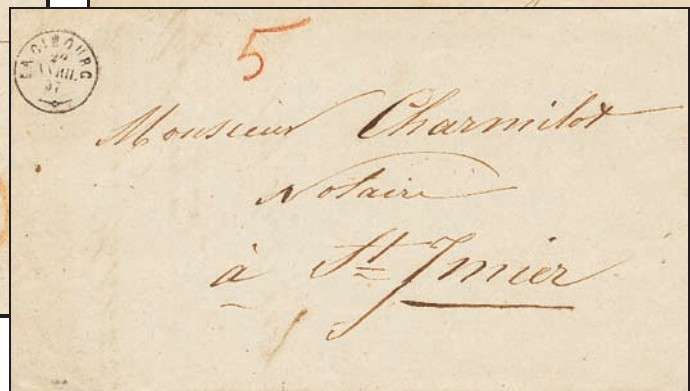 LA CIBOURG
AVRIL
57
5
Monsieur Charmillot
Notaire
à St Jmier